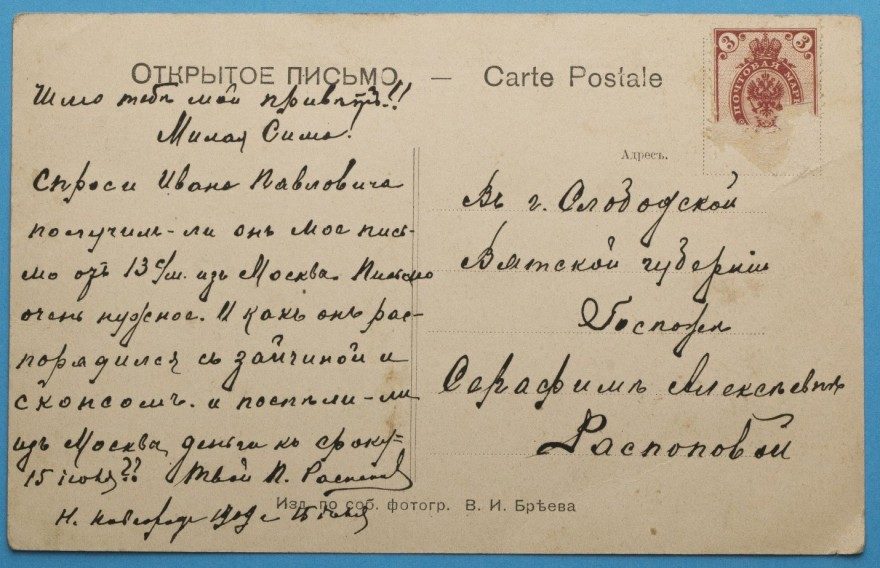 Открытое письмо — Carte Postale
3 3
ПОЧТОВАЯ МАРК
Шлю тебѣ мой привѣтъ!!
Милая Сима!
Спроси Ивана Павловича
получилъ-ли онъ мое пись-
мо отъ 13 с/м. изъ Москвы. Письмо
очень нужное. И какъ онъ рас-
порядился съ зайчиной и
и поспѣли-ли
изъ Москвы деньги къ сроку=
15 іюля?? Твой П.
Н. Новгородъ 1909 г 15 іюля
Адресъ.
Въ г. Слободской
Вятской губерніи
Госпожѣ
Серафимѣ Алексѣевнѣ
Распоповой
Изд. по соб. фотогр. В. И. Брѣева